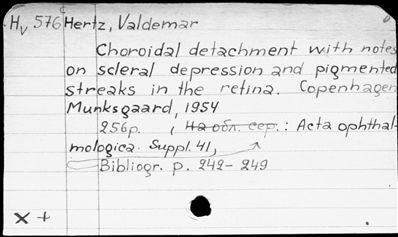 Hv 576 Hertz, Valdemar
Choroidal detachment with notes
on scleral depression and pigmented
streaks in the retina. Copenhagen
Munksgaard, 1954
256p. , На обл. сер.: Acta ophthal-
mologica. Suppl. 41,
Bibliogr. p. 242-249
x +